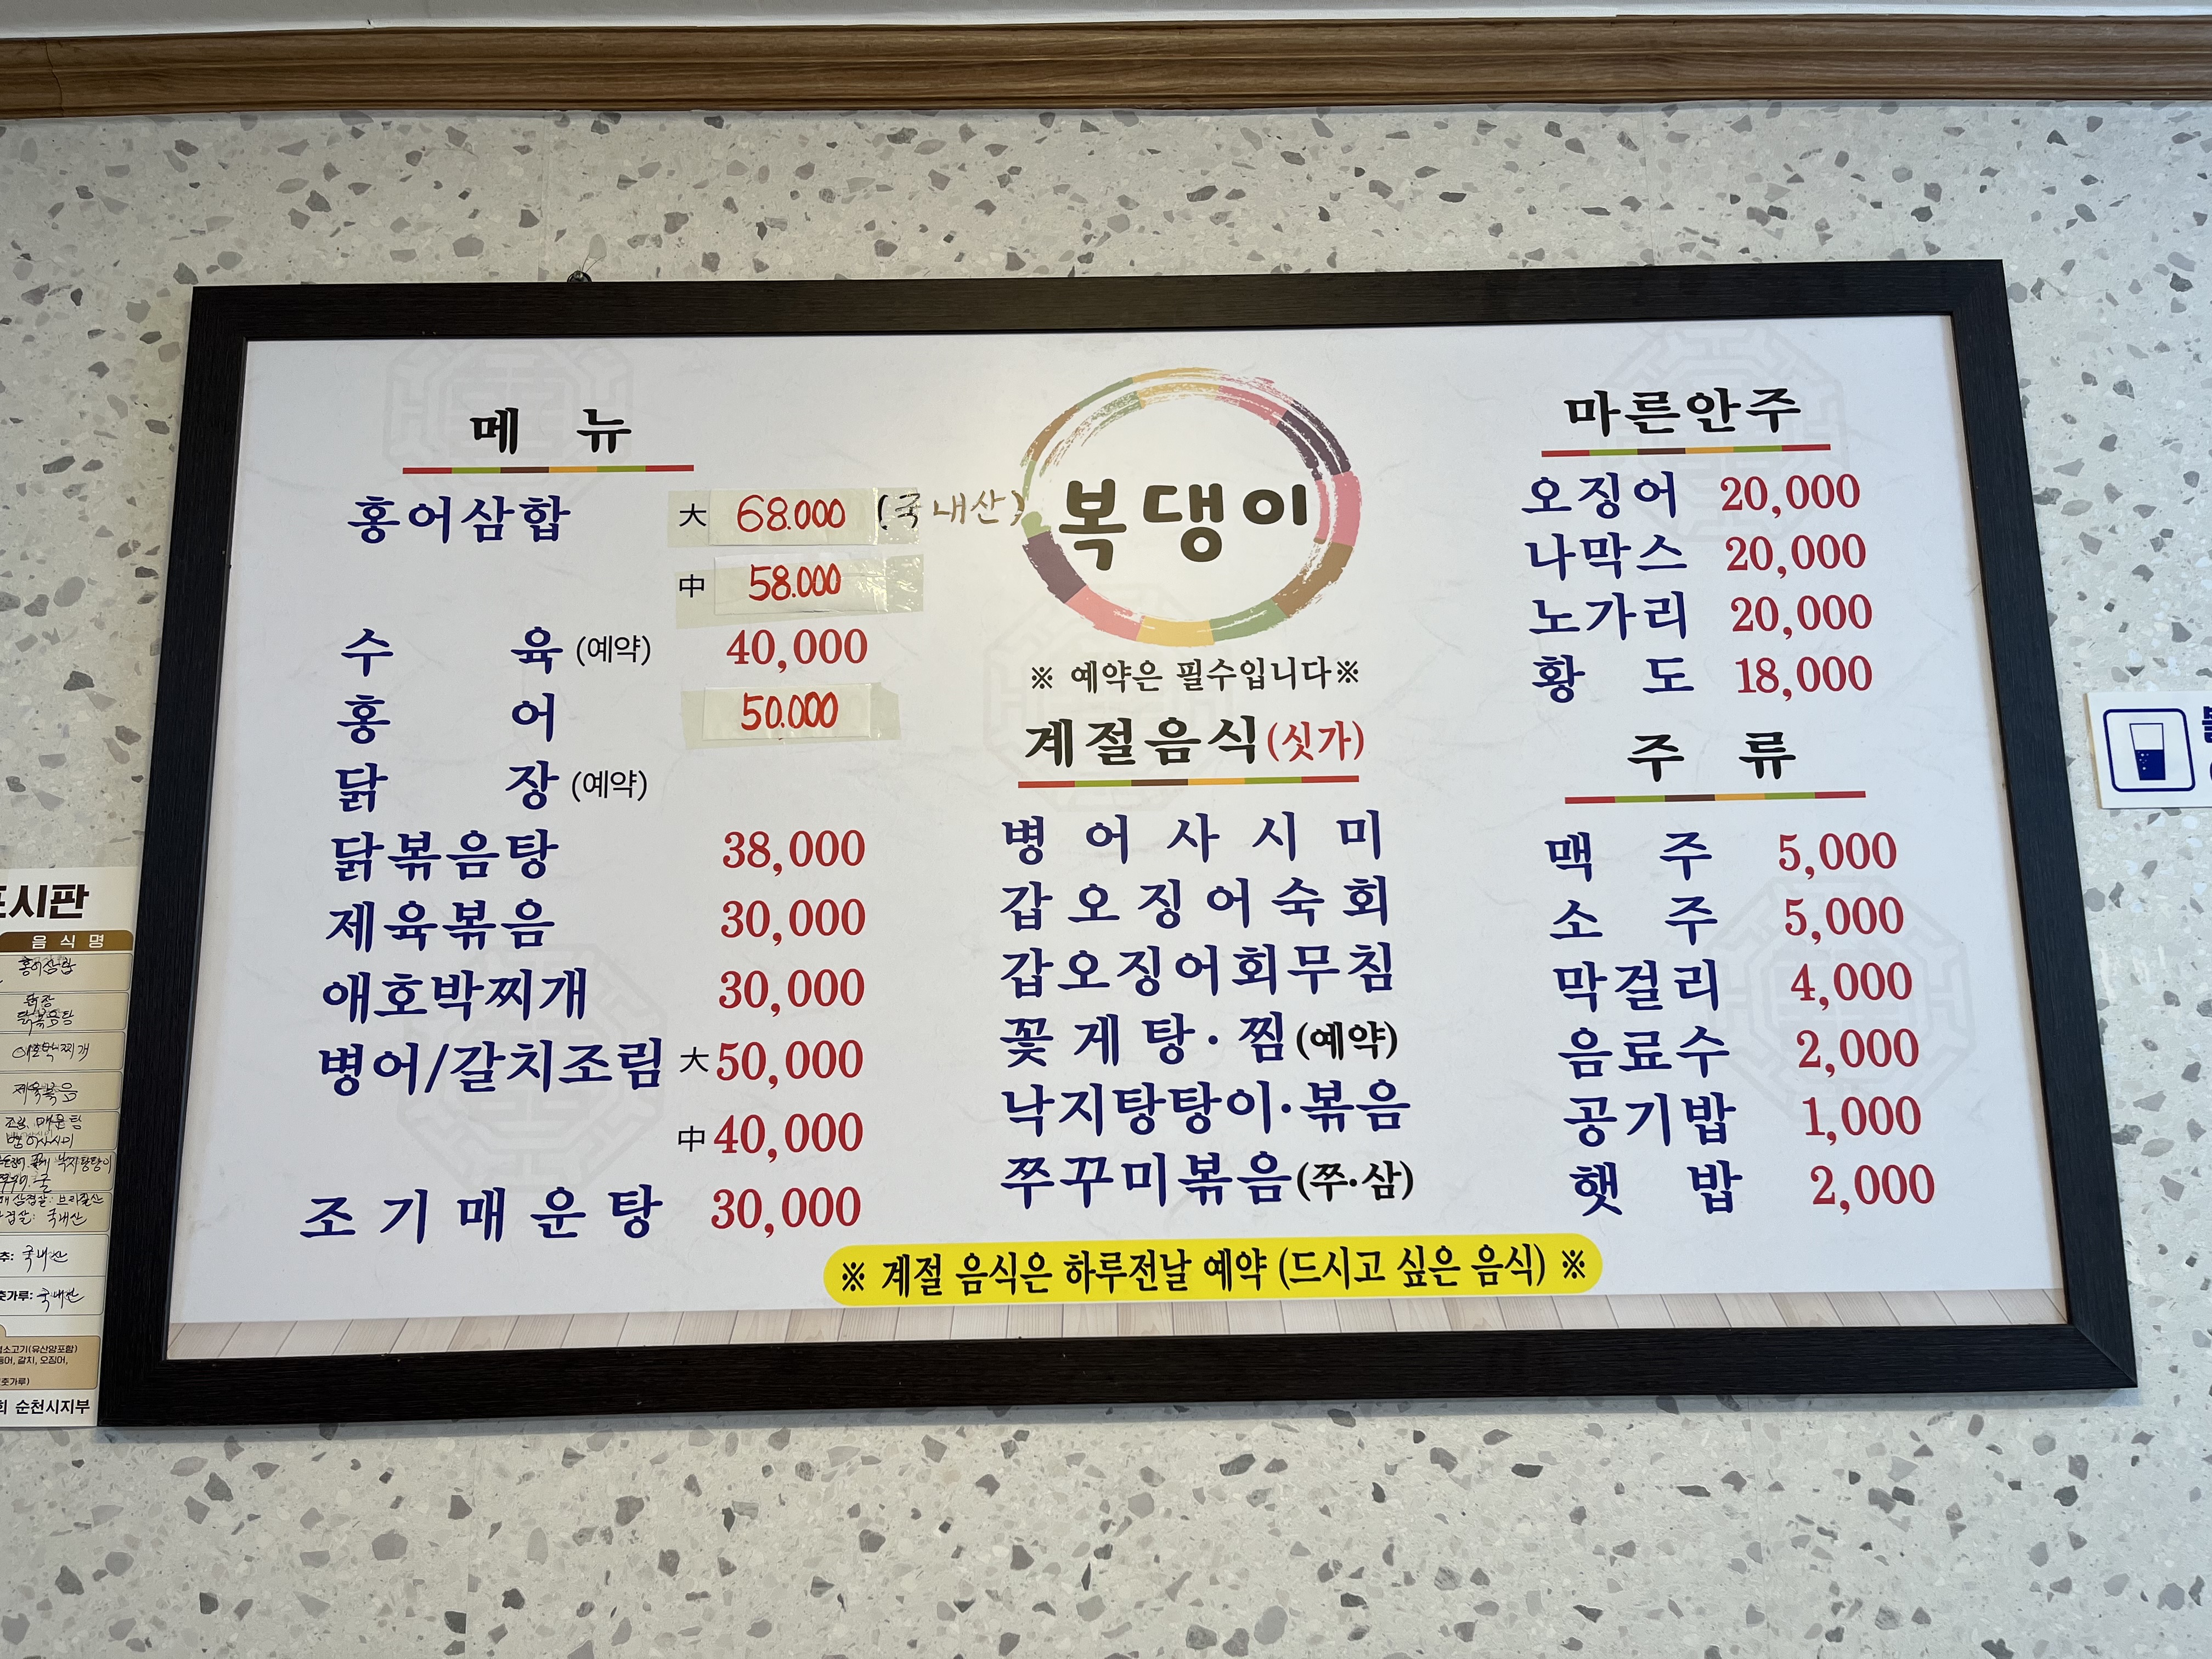 메 뉴
홍어삼합 大 68.000 (국내산)
中 58.000
수 육 (예약) 40,000
홍 어 50.000
닭 장 (예약)
닭볶음탕 38,000
제육볶음 30,000
애호박찌개 30,000
병어/갈치조림 大 50,000
中 40,000
조기매운탕 30,000
복댕이
※ 예약은 필수입니다※
계절음식(싯가)
병어사시미
갑오징어숙회
갑오징어회무침
꽃게탕·찜(예약)
낙지탕탕이·볶음
쭈꾸미볶음(쭈·삼)
※ 계절 음식은 하루전날 예약 (드시고 싶은 음식) ※
마른안주
오징어 20,000
나막스 20,000
노가리 20,000
황 도 18,000
주 류
맥 주 5,000
소 주 5,000
막걸리 4,000
음료수 2,000
공기밥 1,000
햇 밥 2,000
표시판
음 식 명
홍어삼합
닭장
닭볶음탕
애호박찌개
제육볶음
조림, 매운탕
병어사시미
낙지탕탕이
국내산
추: 국내산
춧가루: 국내산
소고기(유산양포함)
갈치, 오징어,
춧가루)
회 순천시지부